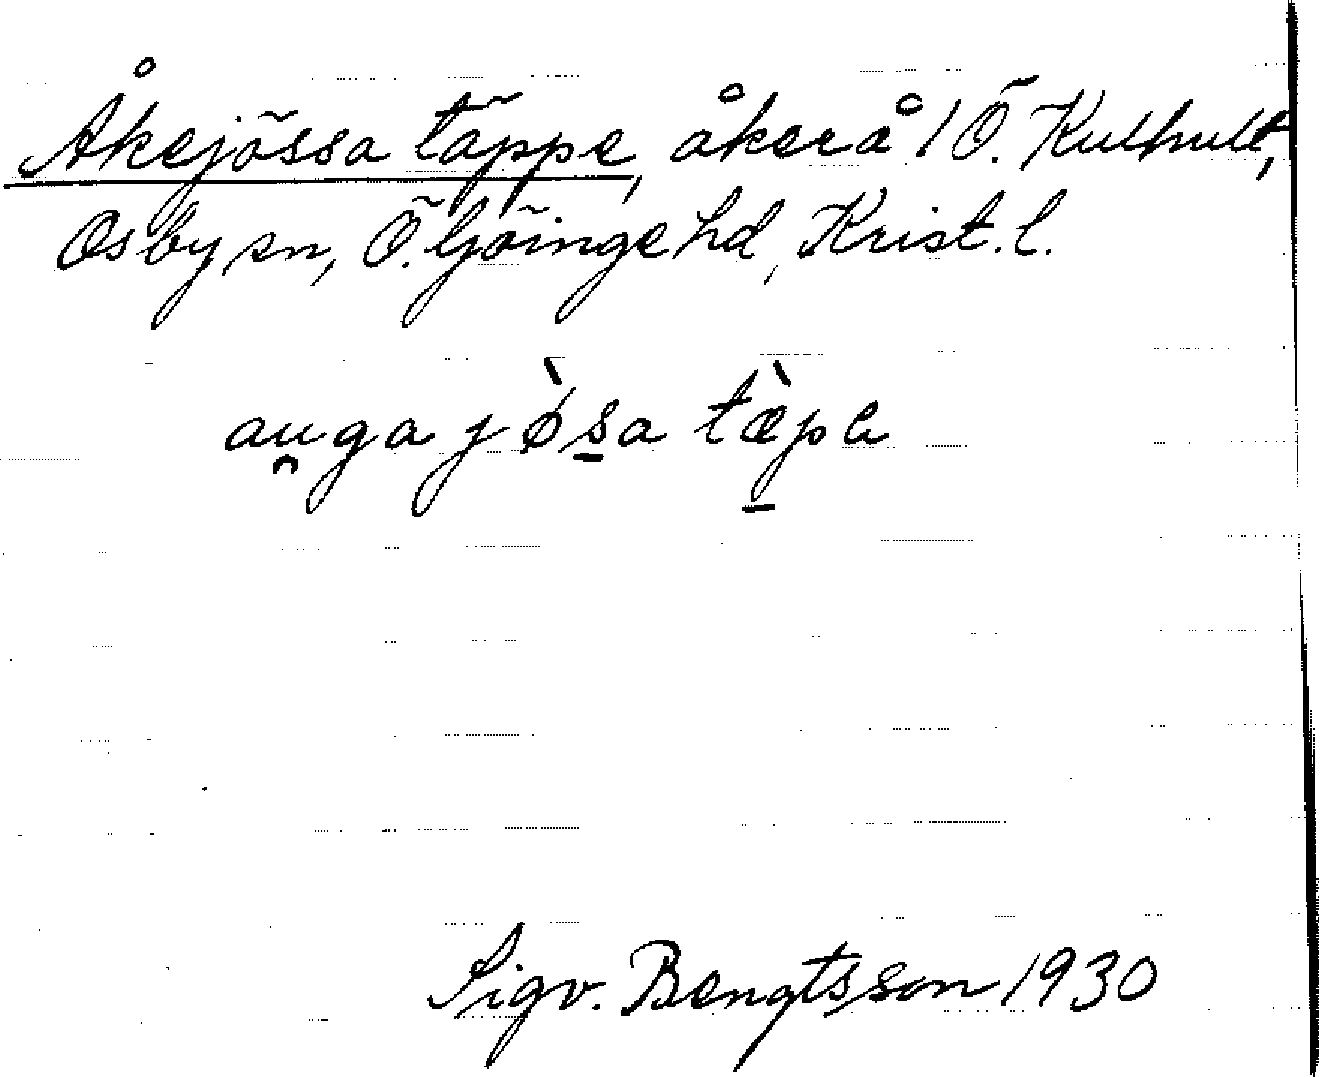 Åkejössa täppe, åker å 1 Ö. Kulhult,
Osby sn, Ö. Göinge hd, Krist. l.
au̯ga jø̀s̠a tæ̀p̠a
Sigv. Bengtsson 1930